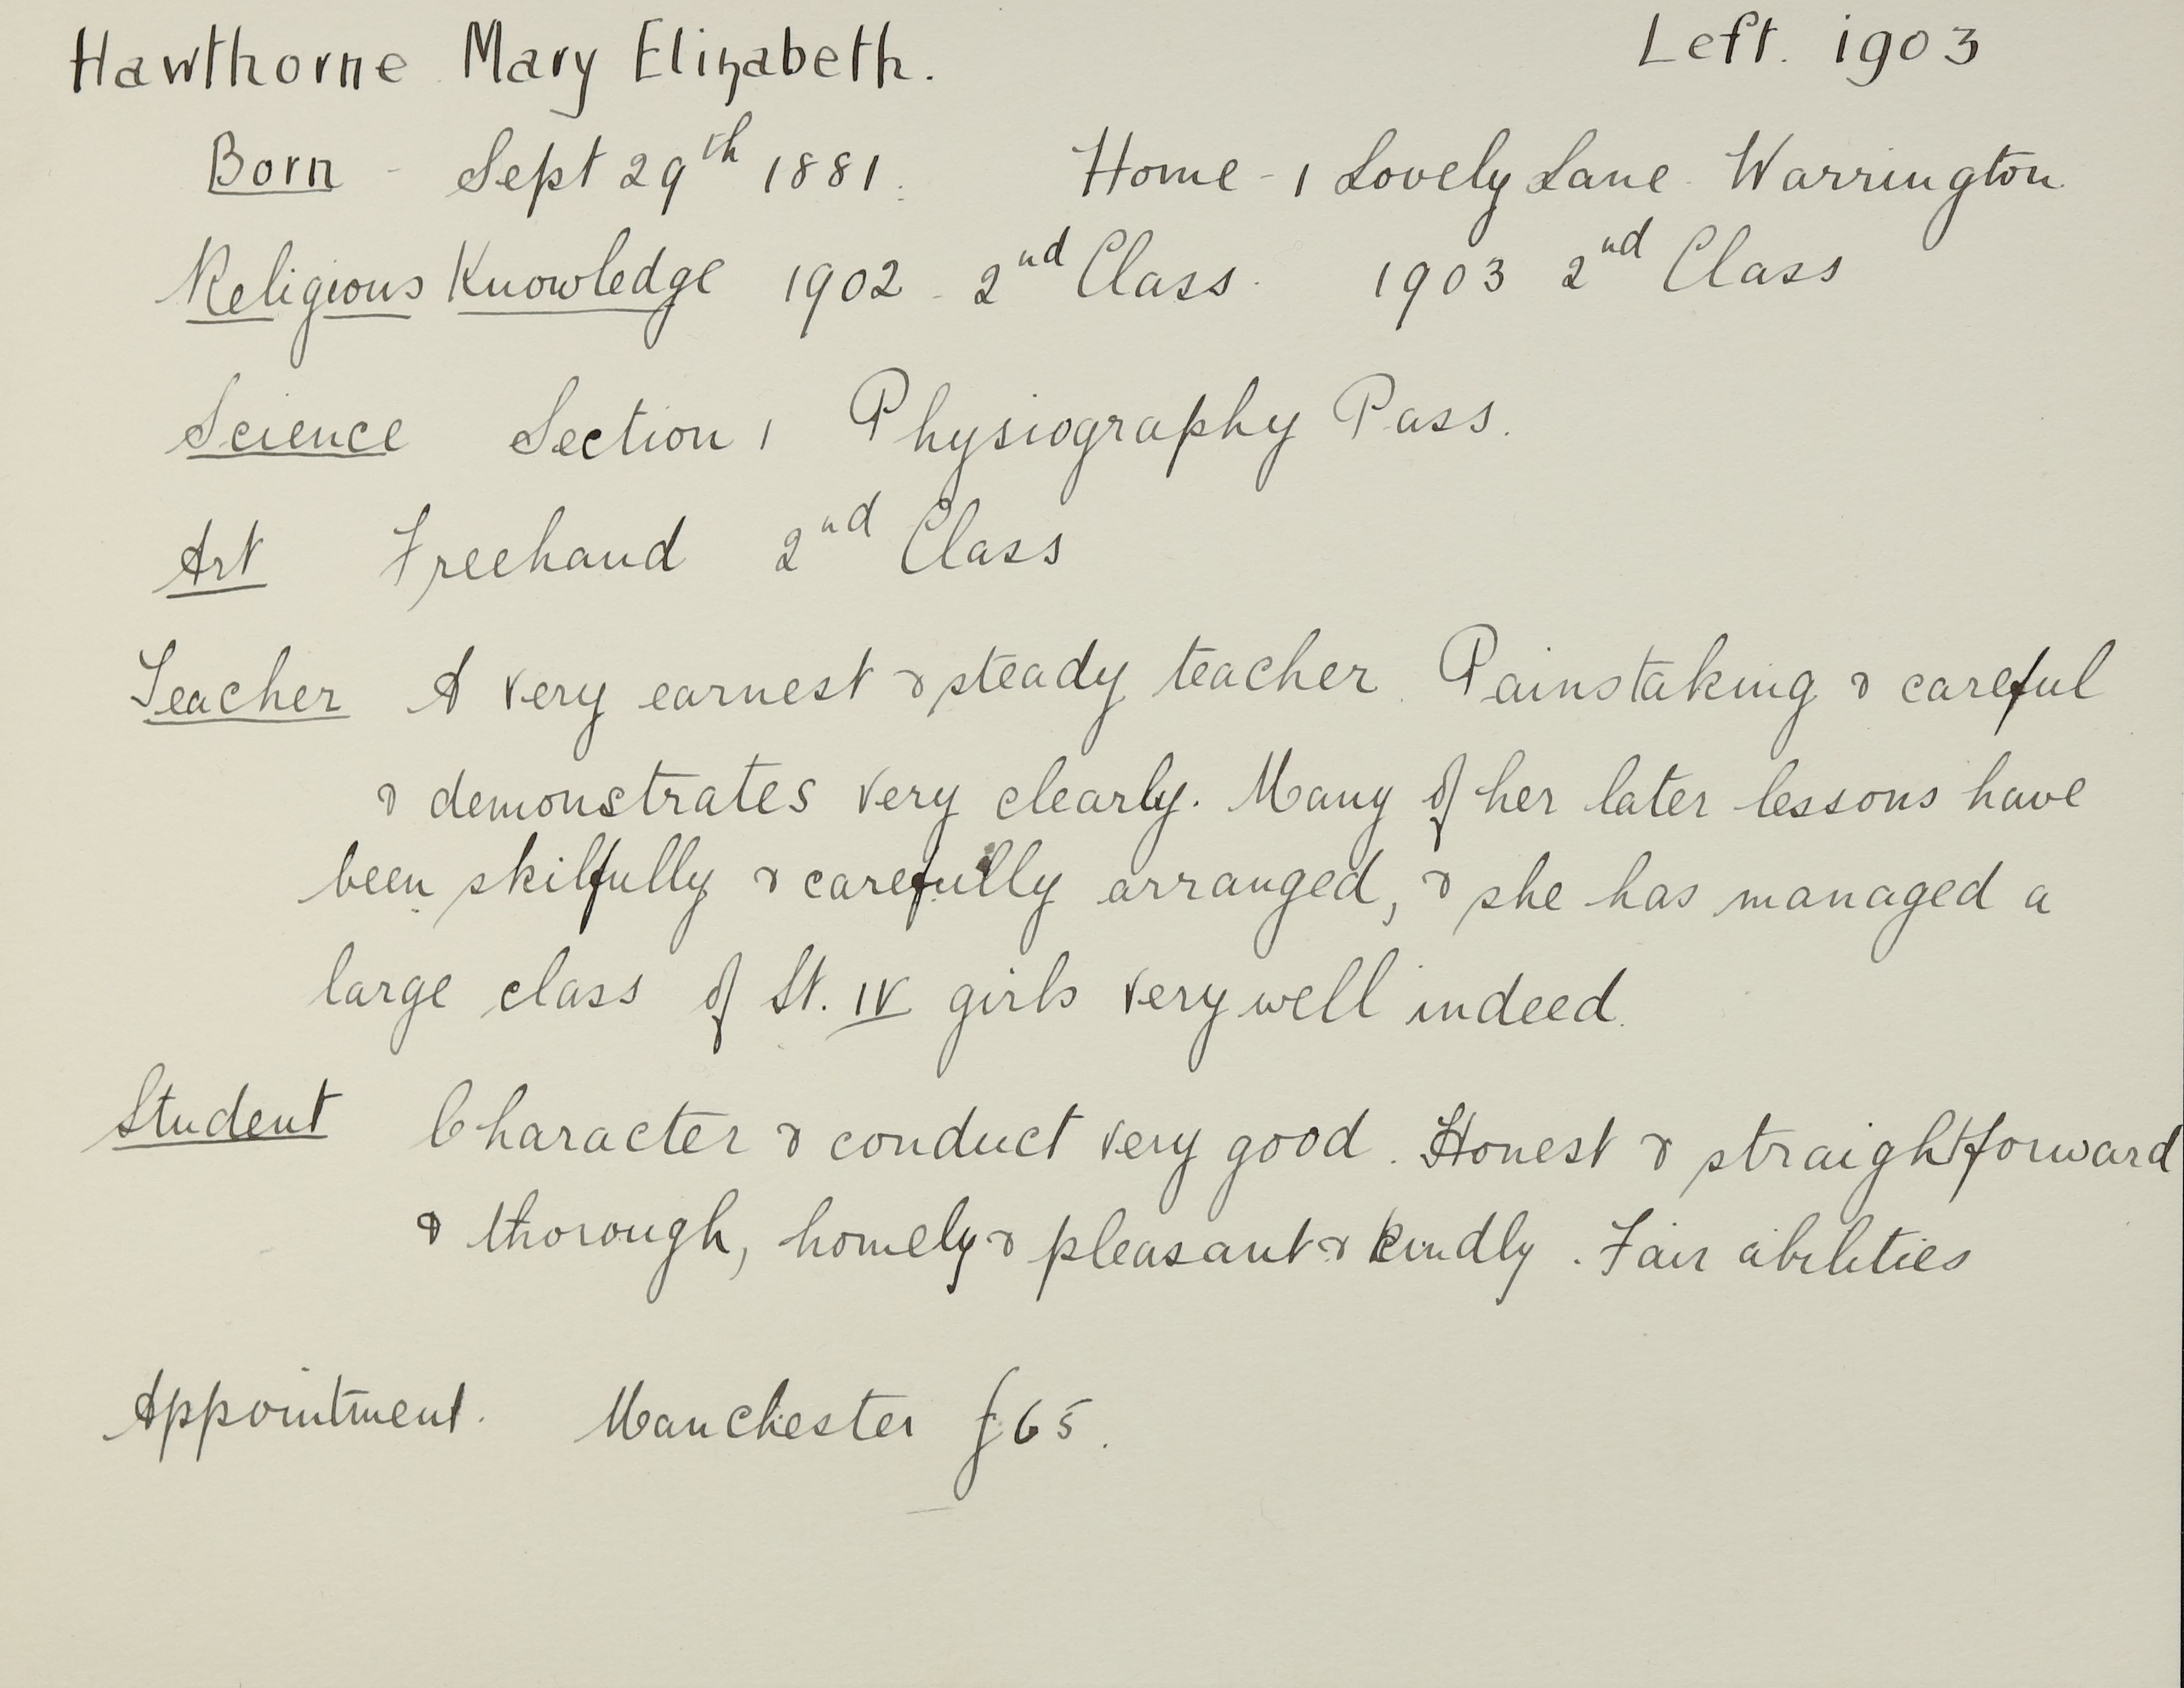 Hawthorne Mary Elizabeth. Left. 1903
Born - Sept 29th 1881. Home - 1 Lovely Lane Warrington
Religious Knowledge 1902 - 2nd Class. 1903 2nd Class
Science Section 1 Physiography Pass.
Art Freehand 2nd Class
Teacher A very earnest & steady teacher. Painstaking & careful
& demonstrates very clearly. Many of her later lessons have
been skilfully & carefully arranged, & she has managed a
large class of St. IV girls very well indeed.
Student Character & conduct very good. Honest & straightforward
& thorough, homely & pleasant & kindly. Fair abilities
Appointment. Manchester £65.